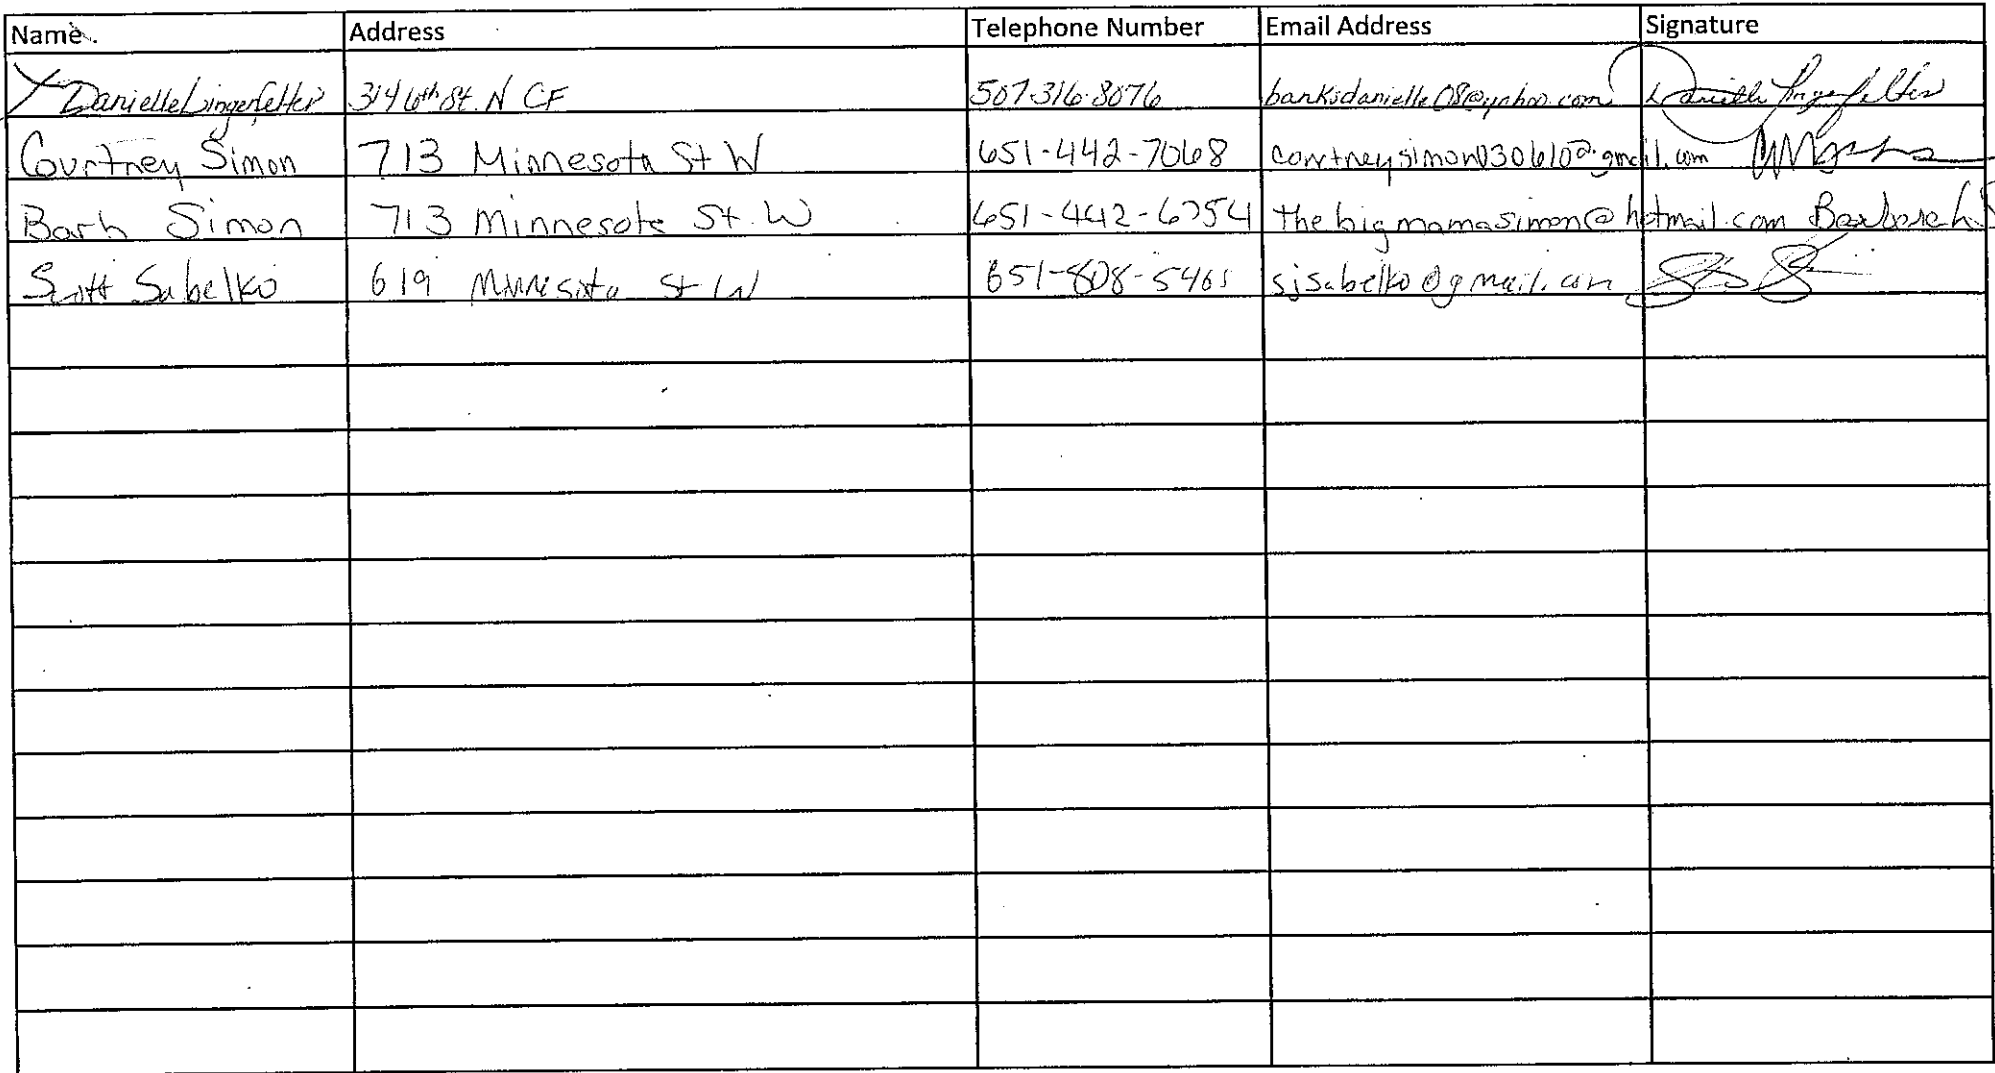 Name Address Telephone Number Email Address Signature
X Danielle Lingenfelter 314 6th St. N CF 507-316-8076 banksdanielle08@yahoo.com Danielle Lingenfelter
Courtney Simon 713 Minnesota St W 651-442-7068 courtneysimon030610@gmail.com
Barb Simon 713 Minnesota St. W 651-442-6754 thebigmamasimon@hotmail.com Barbara
Scott Sabelko 619 Minnesota St W 651-808-5465 sjsabelko@gmail.com